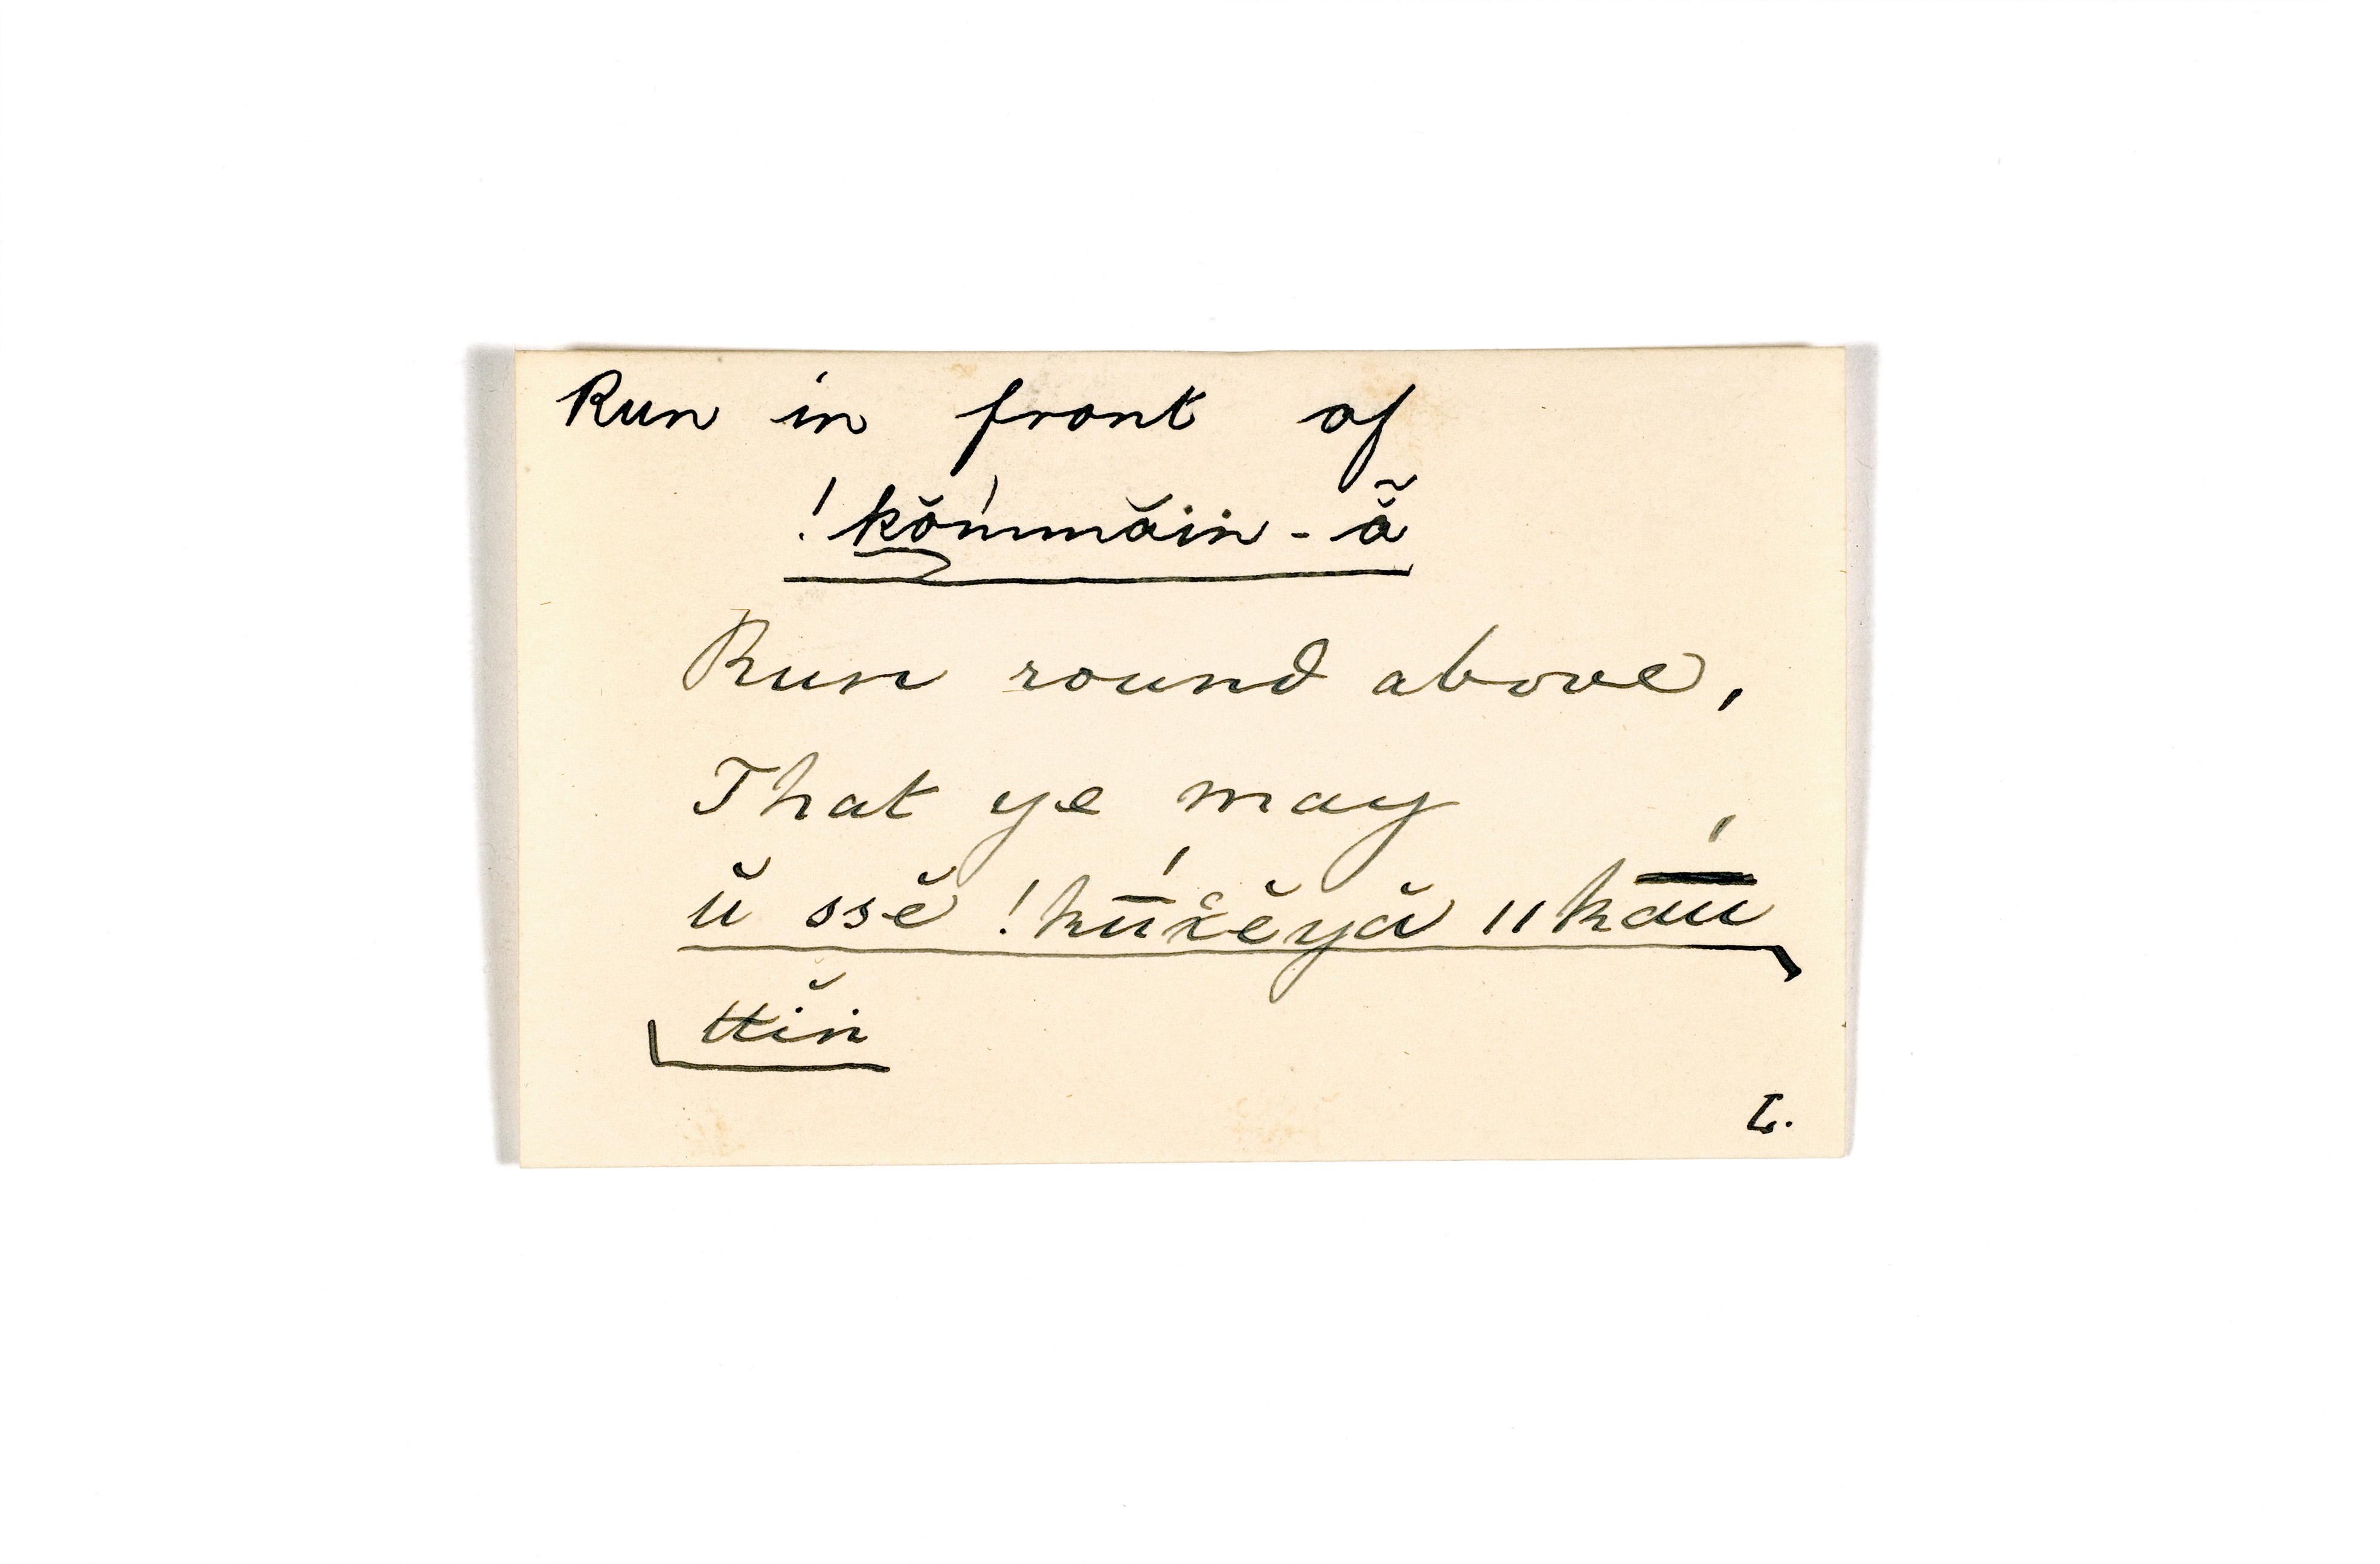 Run in front of
!kŏ́mmăin-ẵ
Run round above,
That ye may
ŭ ssĕ !kū́χĕyă ǁkā́u
ttĭn
L.